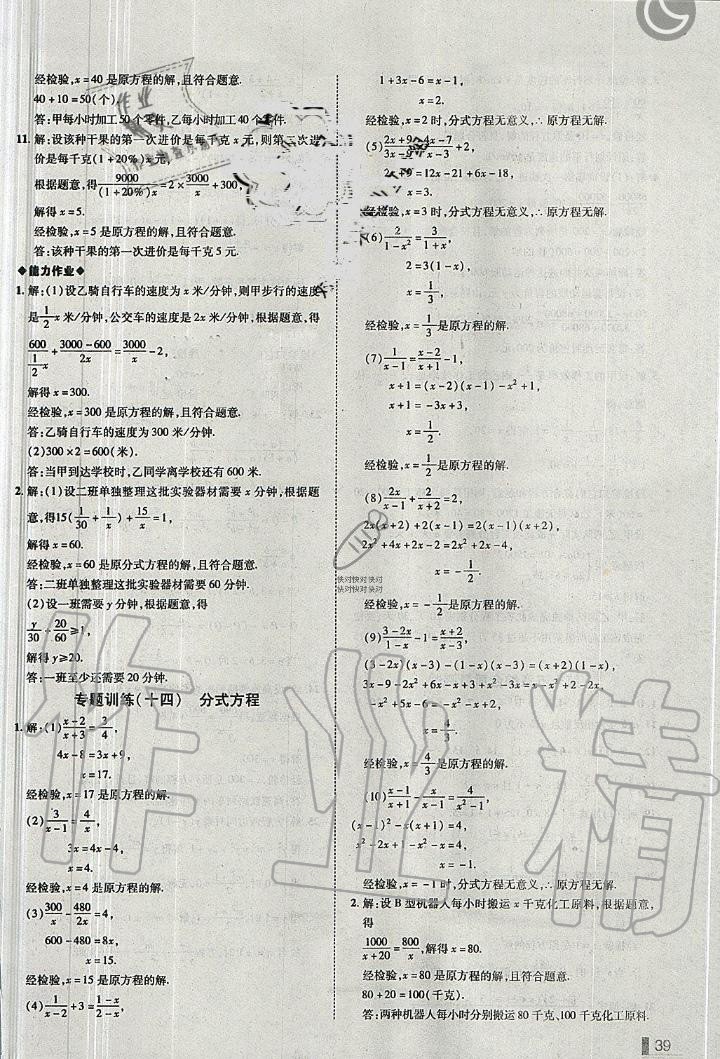 经检验,x=40是原方程的解,且符合题意.
40+10=50(个).
答:甲每小时加工50个零件,乙每小时加工40个零件.
11. 解:设该种干果的第一次进价是每千克x元,则第二次进
价是每千克(1+20%)x元.
根据题意,得9000/(1+20%)x=2×3000/x+300,
解得x=5.
经检验,x=5是原方程的解,且符合题意.
答:该种干果的第一次进价是每千克5元.
◆能力作业◆
1. 解:(1)设乙骑自行车的速度为x米/分钟,则甲步行的速度
是1/2x米/分钟,公交车的速度是2x米/分钟,根据题意,得
600/(1/2x)+(3000-600)/2x=3000/x-2,
解得x=300.
经检验,x=300是原方程的解,且符合题意.
答:乙骑自行车的速度为300米/分钟.
(2)300×2=600(米).
答:当甲到达学校时,乙同学离学校还有600米.
2. 解:(1)设二班单独整理这批实验器材需要x分钟,根据题
意,得15(1/30+1/x)+15/x=1,
解得x=60.
经检验,x=60是原分式方程的解,且符合题意.
答:二班单独整理这批实验器材需要60分钟.
(2)设一班需要y分钟,根据题意,得
y/30+20/60≥1,
解得y≥20.
答:一班至少还需要20分钟.
专题训练(十四) 分式方程
1. 解:(1)(x-2)/(x+3)=3/4,
4x-8=3x+9,
x=17.
经检验,x=17是原方程的解.
(2)3/(x-1)=4/x,
3x=4x-4,
x=4.
经检验,x=4是原方程的解.
(3)300/x-480/2x=4,
600-480=8x,
x=15.
经检验,x=15是原方程的解.
(4)1/(x-2)+3=(1-x)/(2-x),
1+3x-6=x-1,
x=2.
经检验,x=2时,分式方程无意义,∴原方程无解.
(5)(2x+9)/(3x-9)=(4x-7)/(x-3)+2,
2x+9=12x-21+6x-18,
x=3.
经检验,x=3时,分式方程无意义,∴原方程无解.
(6)2/(1-x²)=3/(1+x),
2=3(1-x),
x=1/3,
经检验,x=1/3是原方程的解.
(7)1/(x-1)=(x-2)/(x+1)-1,
x+1=(x-2)(x-1)-x²+1,
x+1=-3x+3,
x=1/2.
经检验,x=1/2是原方程的解.
(8)2x/(x-1)+2/(x+2)=2,
2x(x+2)+2(x-1)=2(x-1)(x+2),
2x²+4x+2x-2=2x²+2x-4,
x=-1/2.
经检验,x=-1/2是原方程的解.
(9)(3-2x)/(x-2)-1=(x+2)/(x-3),
(3-2x)(x-3)-(x-2)(x-3)=(x+2)(x-2),
3x-9-2x²+6x-x²+5x-6=x²-4,
x=4/3.
经检验,x=4/3是原方程的解.
(10)(x-1)/(x+1)-1/(x-1)=4/(x²-1),
(x-1)²-(x+1)=4,
x=-1.
经检验,x=-1时,分式方程无意义,∴原方程无解.
2. 解:设B型机器人每小时搬运x千克化工原料,根据题意,
得
1000/(x+20)=800/x,解得x=80.
经检验,x=80是原方程的解,且符合题意.
80+20=100(千克).
答:两种机器人每小时分别搬运80千克、100千克化工原料.
快对快对快对
快对快对快对
作业精
39